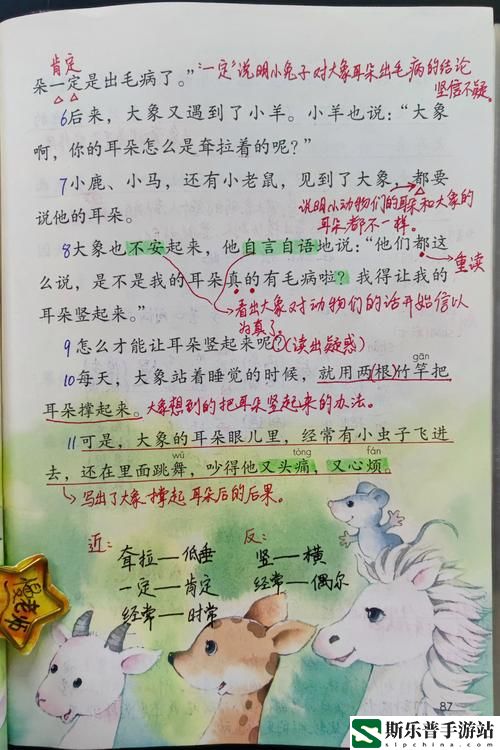 肯定
朵一定是出毛病了。”
“一定”说明小兔子对大象耳朵出毛病的结论
坚信不疑。
6后来，大象又遇到了小羊。小羊也说：“大象
啊，你的耳朵怎么是耷拉着的呢？”
7小鹿、小马，还有小老鼠，见到了大象，都要
说他的耳朵。
说明小动物们的耳朵和大象的
耳朵都不一样。
8大象也不安起来，他自言自语地说：“他们都这
么说，是不是我的耳朵真的有毛病啦？我得让我的
重读
耳朵竖起来。”
看出大象对动物们的话开始信以
为真了。
9怎么才能让耳朵竖起来呢？(读出疑惑)
gān
10每天，大象站着睡觉的时候，就用两(根)竹竿把
耳朵撑起来。
大象想到的把耳朵竖起来的办法。
11可是，大象的耳朵眼儿里，经常有小虫子飞进
wǔ tóng fán
去，还在里面跳舞，吵得他又头痛，又心烦。
写出了大象撑起耳朵后的后果。
近： 反：
耷拉—低垂 竖—横
一定—肯定 经常—偶尔
经常—时常
慢老师
87
斯乐普手游站
slpchina.com